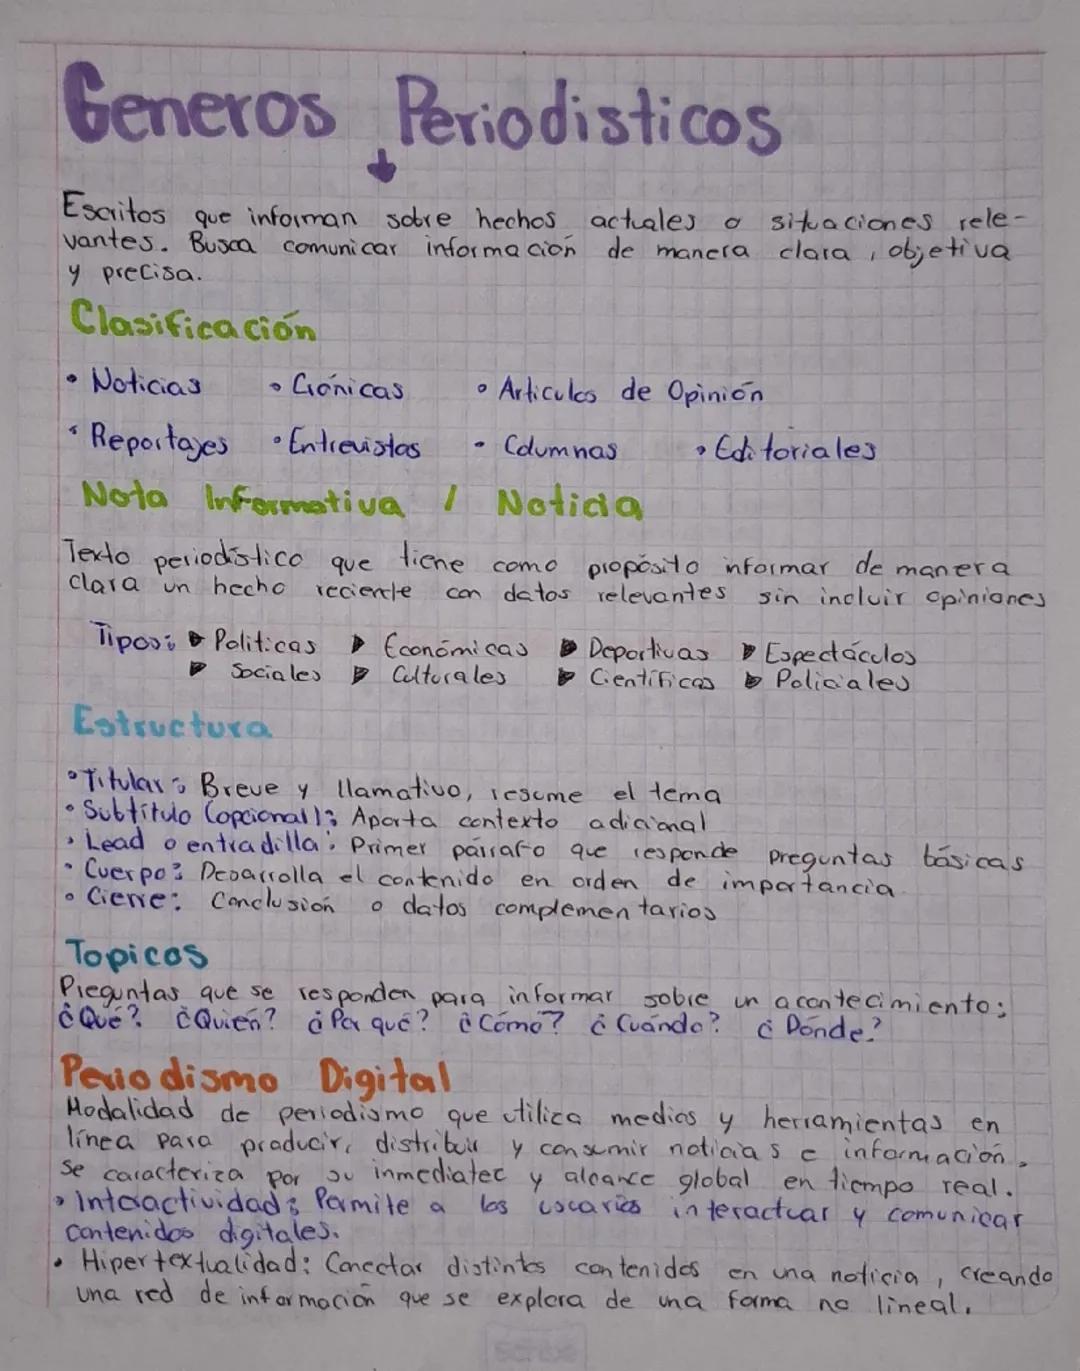 Generos Periodisticos
Escritos que informan sobre hechos actuales o situaciones rele-
vantes. Busca comunicar información de manera clara, objetiva
y precisa.
Clasificación
• Noticias • Crónicas • Articulos de Opinión
• Reportajes • Entrevistas • Columnas • Editoriales
Nota Informativa / Noticia
Texto periodístico que tiene como propósito informar de manera
clara un hecho reciente con datos relevantes sin incluir opiniones
Tipos: Politicas Económicas Deportivas Espectáculos
Sociales Culturales Científicas Policiales
Estructura
• Titular: Breve y llamativo, resume el tema
• Subtítulo (opcional): Aporta contexto adicional
• Lead o entradilla: Primer párrafo que responde preguntas básicas
• Cuerpo: Desarrolla el contenido en orden de importancia
• Cierre: Conclusión o datos complementarios
Topicos
Preguntas que se responden para informar sobre un acontecimiento:
¿Qué? ¿Quién? ¿Por qué? ¿Cómo? ¿Cuándo? ¿Dónde?
Periodismo Digital
Modalidad de periodismo que utiliza medios y herramientas en
línea para producir, distribuir y consumir noticias e información.
Se caracteriza por su inmediatec y alcance global en tiempo real.
• Interactividad: Permite a los usuarios interactuar y comunicar
contenidos digitales.
• Hipertextualidad: Conectar distintos contenidos en una noticia, creando
una red de información que se explora de una forma no lineal.
scribe